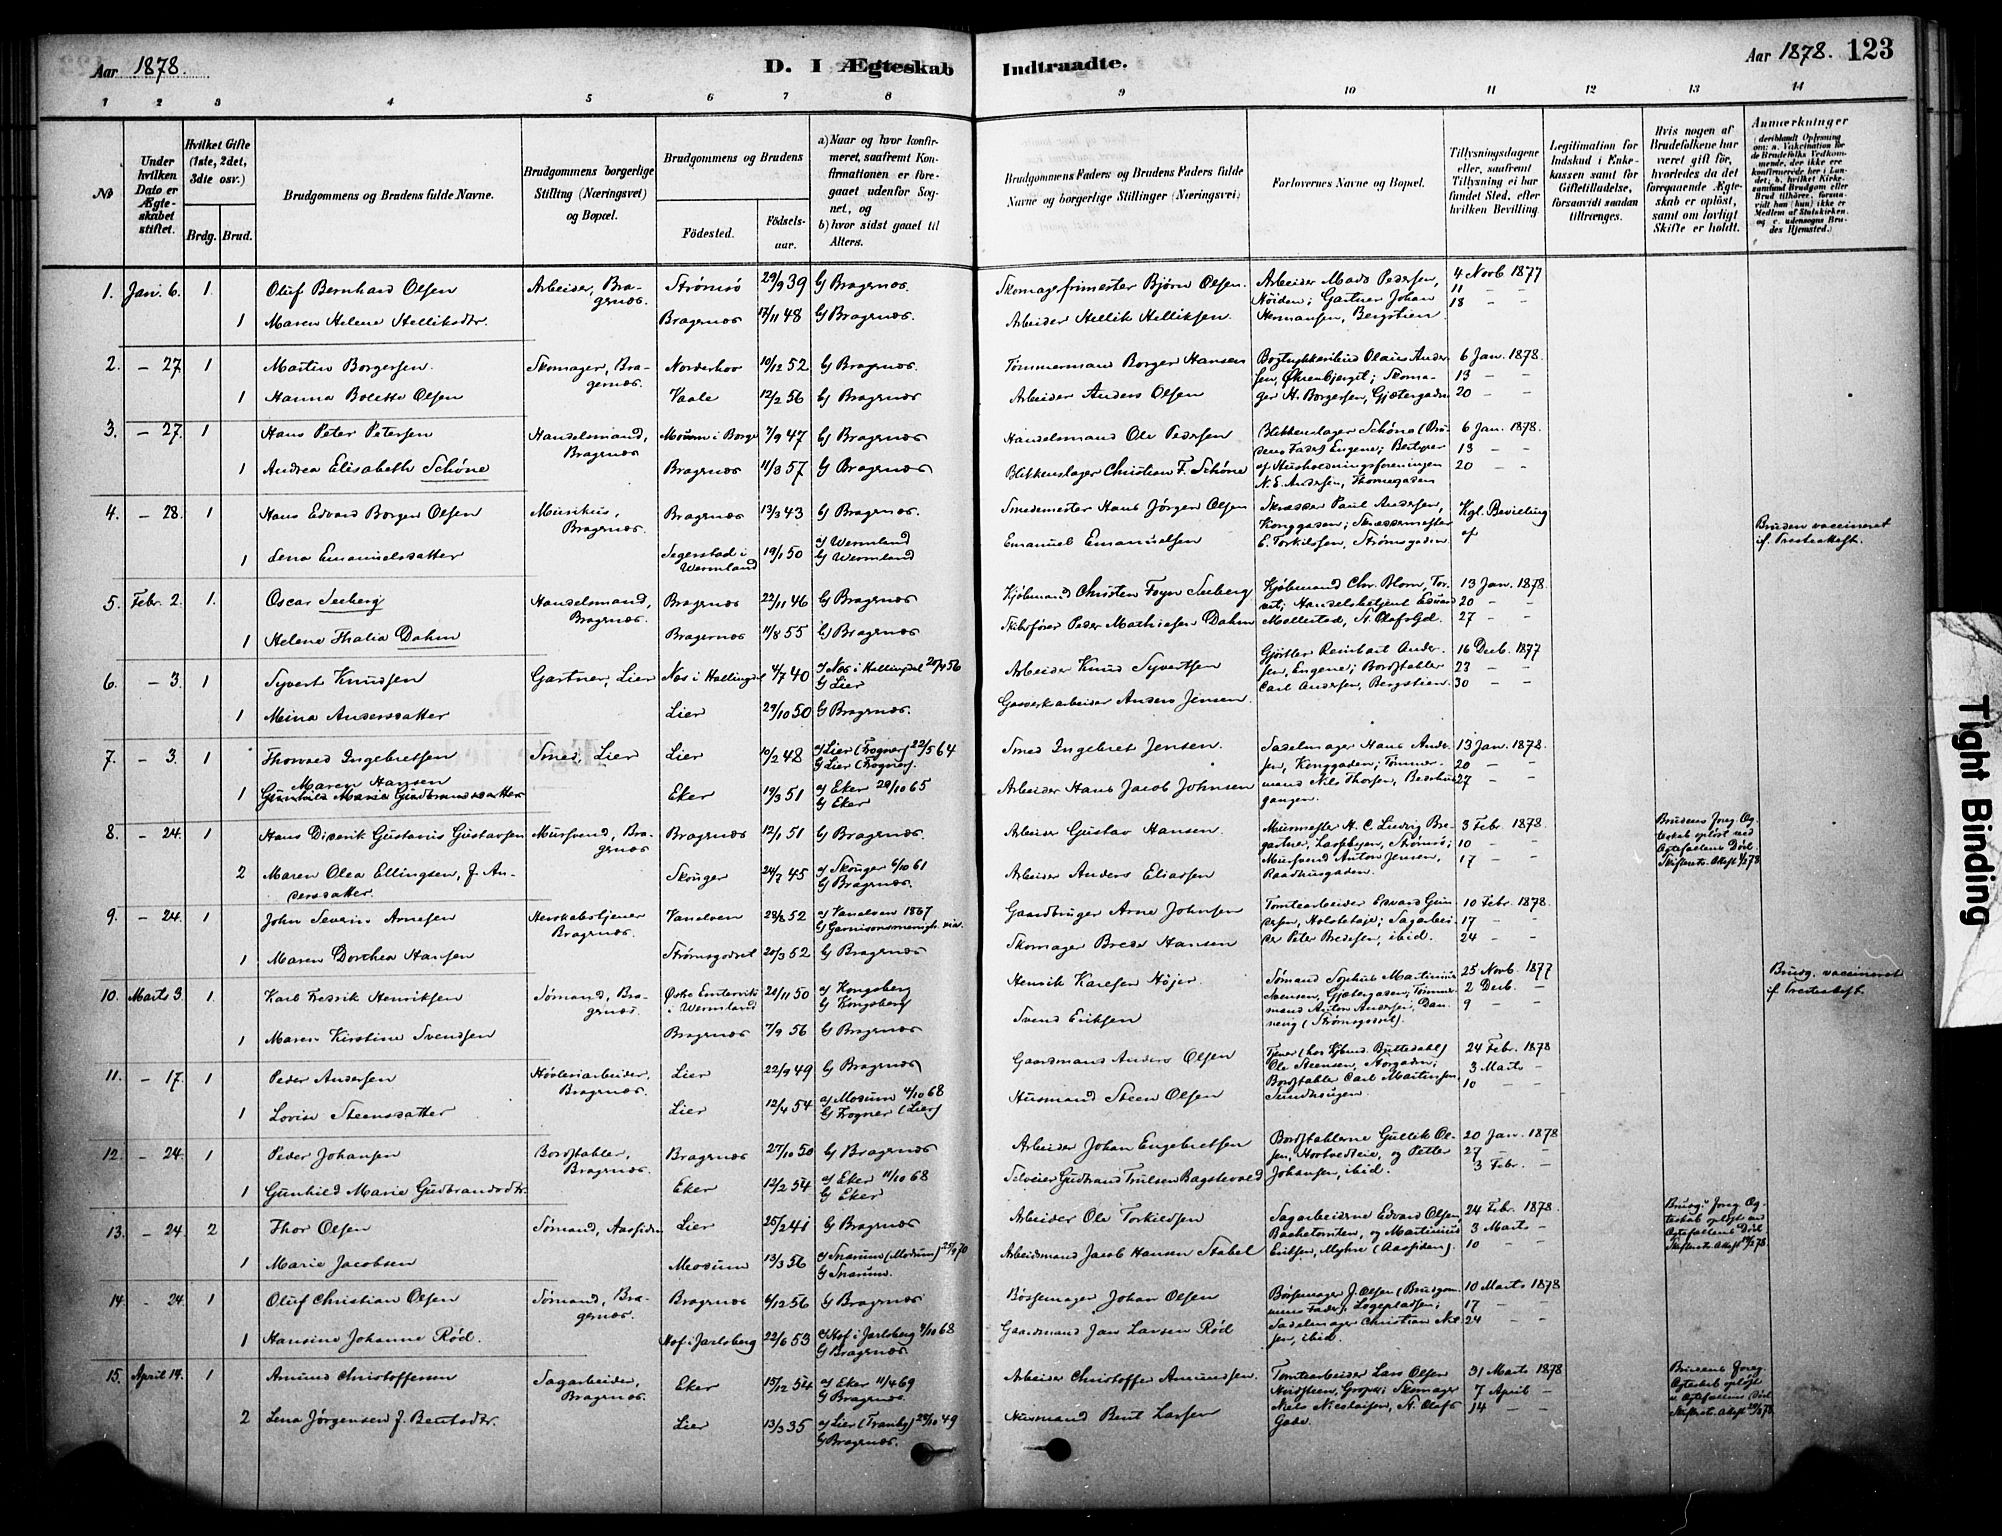 Aar 1878.
D. I Ægteskab Indtraadte.
Aar 1878. 123
1 2 3 4 5 6 7 8 9 10 11 12 13 14
No
Under hvilken Dato er Ægteskabet stiftet.
Hvilket Gifte (1ste, 2det, 3die osv.)
Brdg. Brud.
Brudgommens og Brudens fulde Navne.
Brudgommens borgerlige Stilling (Næringsvei) og Bopæl.
Brudgommens og Brudens
Fødested. Fødsels-aar.
a) Naar og hvor konfirmeret, saafremt Konfirmationen er foregaaet udenfor Sognet, og
b) hvor sidst gaaet til Alters.
Brudgommens Faders og Brudens Faders fulde Navne og borgerlige Stillinger (Næringsvei)
Forlovernes Navne og Bopæl.
Tillysningsdagene eller, saafremt Tillysning ei har fundet Sted, efter hvilken Bevilling.
Legitimation for Indskud i Enkekassen samt for Giftetilladelse, forsaavidt saadan tiltrænges.
Hvis nogen af Brudefolkene har været gift før, hvorledes da det foregaaende Ægteskab er opløst, samt om lovligt Skifte er holdt.
Anmærkninger
1. Jan. 6. 1. Oluf Bernhard Olsen Arbeider, Bragernæs. Strømsø 29/9 39 b) Bragernæs. Skomagerfrimester Bjørn Olsen. Arbeider Mads Pedersen, Høiden; Gartner Johan Hermansen, Bergstien. 4 Novb 1877 11 - - 18 - -
1 Maren Helene Helliksdtr. Bragernæs 17/11 48 b) Bragernæs. Arbeider Hellik Helliksen.
2. - 27. 1 Martin Borgersen. Skomager, Bragernæs. Norderhov 10/12 52 b) Bragernæs. Tømmermand Borger Hansen 6 Jan. 1878. 13 - - 20 - -
1 Hanna Bolette Olsen Vaale 12/2 56 b) Bragernæs Arbeider Anders Olsen
3. - 27. 1 Hans Peter Petersen Handelsmand, Bragernæs 7/9 47 b) Bragernæs Handelsmand Ole Pedersen Blikkenslager Schøne (Brudens Fader) Engene; Bestyrer af Husholdningsforeningen N. E. Andersen, Thornegaden 6 Jan. 1878. 13 - - 20 - -
1 Andrea Elisabeth Schöne Bragernæs 11/8 57 b) Bragernæs Blikkenslager Christian F. Schöne
4. - 28. 1 Hans Edvard Borgen Olsen Musikus, Bragernæs. Bragernæs 13/3 43 b) Bragernæs. Smedemester Hans Jörgen Olsen Skrædder Paul Andersen, Konggaden; Skræddermester E. Torkildsen, Strømsgaden Kgl. Bevilling af
1 Lena Emanuelsdatter Segerstad i Wermland 19/1 50 a) Wermland b) Wermland Emanuel Emanuelsen Bruden vaccineret if. Presteattest.
5. Febr. 2. 1. Oscar Seeberg Handelsmand, Bragernæs. Bragernæs 22/11 46 b) Bragernæs Kjøbmand Christen Foyn Seeberg Kjøbmand Chr. Blom, Torvet; Handelsbetjent Edvard Mollestad, St. Olafs Gd. 13 Jan. 1878. 20 - - 27 - -
1 Helene Thalia Dahm Bragernæs 11/8 55 b) Bragernæs Skibsfører Peder Mathiesen Dahm
6. - 3. 1 Syvert Knudsen Gartner, Lier Næs i Hallingdal 4/7 40 a) Næs i Hallingdal 20/4 56 b) Lier Arbeider Knud Syvertsen Gjörtler Reinhart Andersen, Engene; Bordstabler Carl Andersen, Bergstien. 16 Decb. 1877 23 - - 30 - -
1 Meina Andersdatter Lier 29/10 50 b) Bragernæs. Gasverksarbeider Anders Jensen.
7. - 3. 1 Thorvald Ingebretsen Smed, Lier Lier 10/2 48 a) Lier (Frogner) 22/5 64 b) Lier (Frogner). Smed Ingebret Jensen. Sadelmager Hans Andersen, Konggaden; Tømmermand Nils Thorsen, 13 Jan. 1878. 20 - - 27 - -
Maren Hansen
1 Gunhild Marie Gudbrandsdatter Eker 19/3 51 a) Eker 29/10 65 b) Eker Arbeider Hans Jacob Johnsen
8. - 24. 1 Hans Diderik Gustavus Gustavsen Mursvend, Bragernæs Bragernæs 12/1 51 b) Bragernæs. Arbeider Gustav Hansen. Murmester H. C. Ludvig Bregartner, Strømsø; Mursvend Anton Jensen, Raadhusgaden. 3 Febr. 1878. 10 - - 17 - -
2 Maren Olea Ellingsen, f. Andersdatter. Skouger 24/7 45 a) Skouger 6/10 61 b) Bragernæs. Arbeider Anders Eliassen
9. - 24. 1 John Severin Arnesen Herskabstjener Bragernæs. Vanelven 28/8 52 a) Vanelven 1867 b) Garnisonsmenigh. Gaardbruger Arne Johnsen Tomtearbeider Edvard Gundersen, Sagarbeider Peter Bredesen, ibid. 10 Febr. 1878. 17 - - 24 - -
1 Maren Dorthea Hansen Strømsgodset 20/3 52 b) Bragernæs Skomager Brede Hansen
10. Marts 3. 1. Karl Fredrik Henriksen Sømand, Bragernæs. 20/11 50 a) Kongsberg b) Kongsberg Henrik Karlsen Höjer 25 Novb. 1877 2 Decb. - 9 - - Brudg. vaccineret if. Presteattest.
1 Maren Kirstine Svendsen Bragernæs 7/9 56 b) Bragernæs Svend Eriksen
11. - 17. 1 Peder Andersen Høvleriarbeider, Bragernæs. Lier 22/9 49 b) Bragernæs Gaardmand Anders Olsen Ole Steensen, Storgaden; Bordstabler Carl Martinsen, Sundhaugen. 24 Febr. 1878 3 Marts - 10 - -
1 Lovise Steensdatter Lier 12/4 54 a) Modum 4/10 68 b) Frogner (Lier) Husmand Steen Olsen
12. - 24. 1 Peder Johansen Bordstabler, Bragernæs. Bragernæs 27/10 50 b) Bragernæs Arbeider Johan Engebretsen Bordstablerne Gullik Olsen, og Petter Johansen, ibid. 20 Jan. 1878 27 - - 3 Febr. -
1 Gunhild Marie Gudbrandsdtr. Eker 12/2 54 a) Eker 11/10 68 b) Eker Selveier Gudbrand Trulsen Bagstevold
13. - 24. 2 Thor Olsen Sømand, Aassiden Lier 25/2 41 b) Bragernæs Arbeider Ole Torkildsen Sagarbeiderne Edvard Olsen, og Martinius Eriksen, Myhre (Aassiden). 24 Febr. 1878 3 Marts - 10 - -
1 Marie Jacobsen Modum 13/3 56 a) Snarum (Modum) 25/9 70 b) Snarum. Arbeidsmand Jacob Hansen Stabel
14. - 24. 1 Oluf Christian Olsen Sømand, Bragernæs. Bragernæs 6/12 56 b) Bragernæs Børsemager Johan Olsen Børsemager J. Olsen (Brudgommens Fader), Logepladsen; Sadelmager Christian Nilsen, ibid. 10 Marts 1878 17 - - 24 - -
1 Hansine Johanne Röd. Hof i Jarlsberg 22/6 53 a) Hof i Jarlsberg 4/10 68 b) Bragernæs. Gaardmand Jan Larsen Röd
15. April 14. 1 Amund Christoffersen Sagarbeider, Bragernæs. Eker 15/12 54 a) Eker 11/4 69 b) Bragernæs. Arbeider Christoffer Amundsen. Tomtearbeider Lars Olsen Skomager Niels Nicolaisen, St. Olafs Gade. 31 Marts 1878 7 April - 14 - -
2 Lena Jørgensen f. Bentsdtr. Lier 13/3 35 a) Lier (Tranby) 29/10 49 b) Bragernæs. Husmand Bent Larsen
Tight Binding